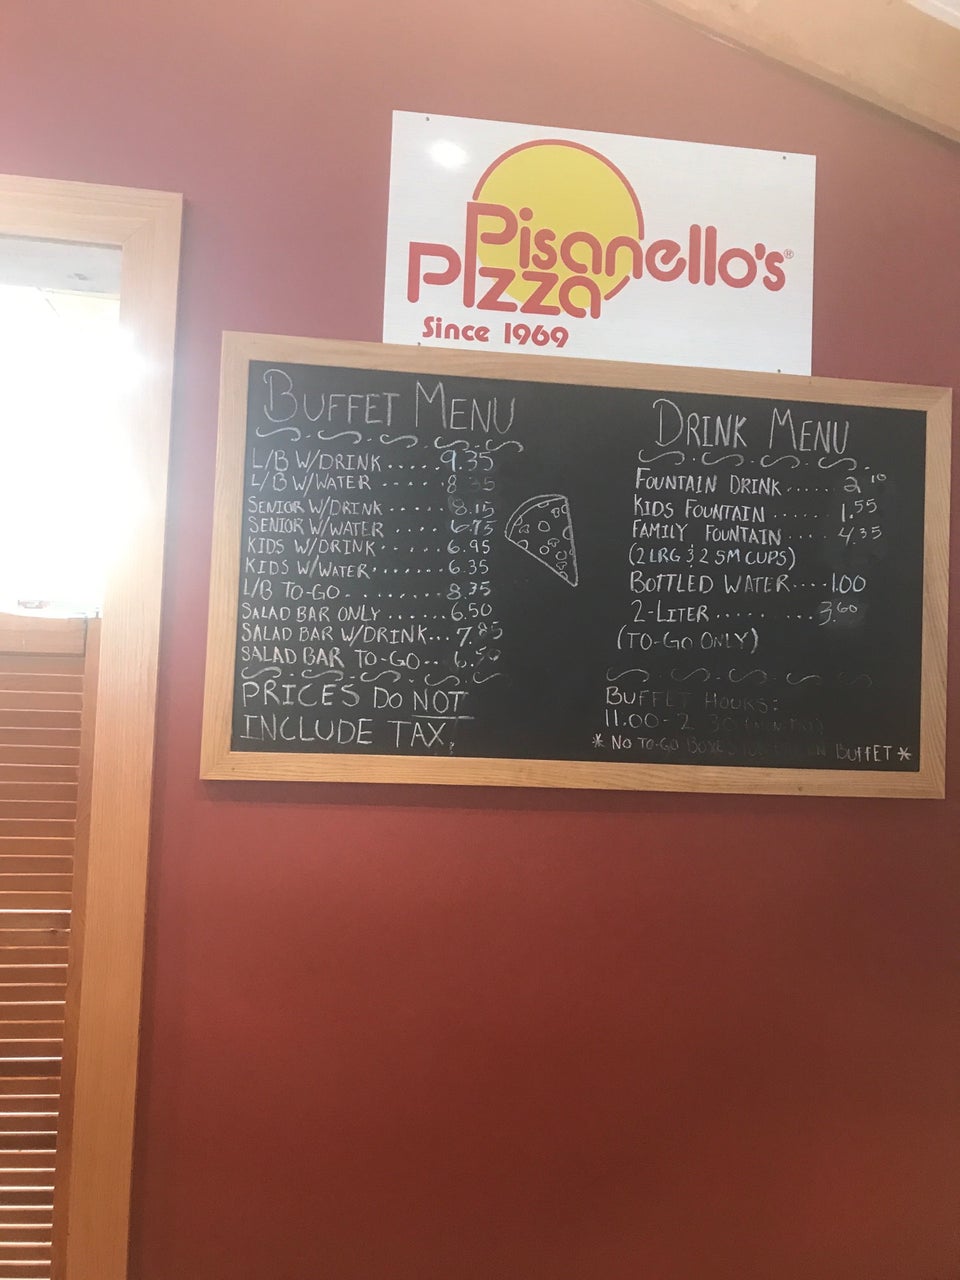 Pisanello's®
PIzza
Since 1969
BUFFET MENU
L/B W/DRINK ..... 9.35
L/B W/WATER ...... 8.35
SENIOR W/DRINK ..... 8.15
SENIOR W/WATER .... 6.75
KIDS W/DRINK ...... 6.95
KIDS W/WATER ....... 6.35
L/B TO-GO ........ 8.35
SALAD BAR ONLY ....... 6.50
SALAD BAR W/DRINK... 7.85
SALAD BAR TO-GO.. 6.50
PRICES DO NOT
INCLUDE TAX.
DRINK MENU
FOUNTAIN DRINK ..... 2.10
KIDS FOUNTAIN ..... 1.55
FAMILY FOUNTAIN .... 4.35
(2 LRG & 2 SM CUPS)
BOTTLED WATER.... 1.00
2-LITER ......... 3.60
(TO-GO ONLY)
BUFFET HOURS:
11:00-2:30
* NO TO-GO BOXES BUFFET *